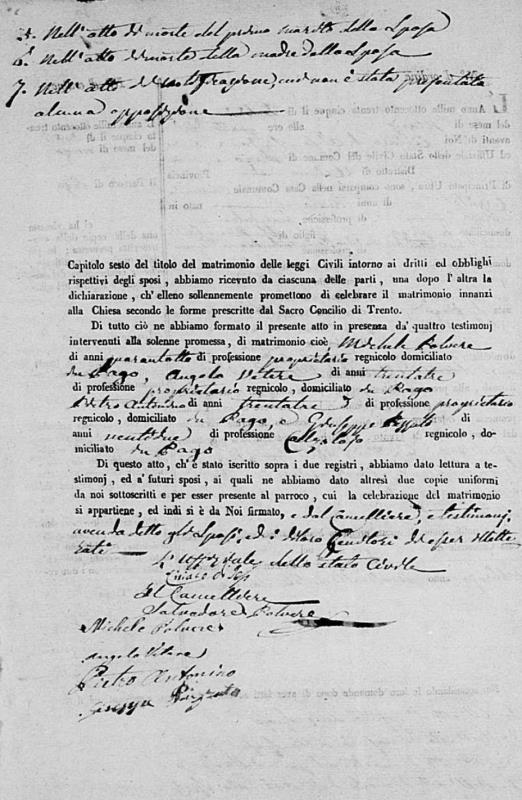 5. Nell'atto di morte del primo marito della Sposa
6. Nell'atto di morte della madre della Sposa
7. Nell'atto di notificazione, cui non è stata presentata
alcuna opposizione
Capitolo sesto del titolo del matrimonio delle leggi Civili intorno ai dritti ed obblighi
rispettivi degli sposi, abbiamo ricevuto da ciascuna delle parti, una dopo l'altra la
dichiarazione, ch'elleno sollennemente promettono di celebrare il matrimonio innanzi
alla Chiesa secondo le forme prescritte dal Sacro Concilio di Trento.
Di tutto ciò ne abbiamo formato il presente atto in presenza da' quattro testimonj
intervenuti alla solenne promessa, di matrimonio cioè, Michele Polvere
di anni quarantotto di professione proprietario regnicolo domiciliato
in Pago, Angelo Vetere di anni trentatre
di professione proprietario regnicolo, domiciliato in Pago
Pietro Antonino di anni trentatre di professione proprietario
regnicolo, domiciliato in Pago, e Giuseppe di
anni ventidue di professione Calzolajo regnicolo, do-
miciliato in Pago
Di questo atto, ch'è stato iscritto sopra i due registri, abbiamo dato lettura a te-
stimonj, ed a' futuri sposi, ai quali ne abbiamo dato altresì due copie uniformi
da noi sottoscritti e per esser presente al parroco, cui la celebrazione del matrimonio
si appartiene, ed indi si è da Noi firmato, e dal Cancelliere, e testimonj,
avendo detto gli Sposi, ed i di loro Genitori di esser illette-
rati
L'Uffiziale dello stato Civile
Il Cancelliere
Salvadore Polvere
Michele Polvere
Angelo Vetere
Pietro Antonino